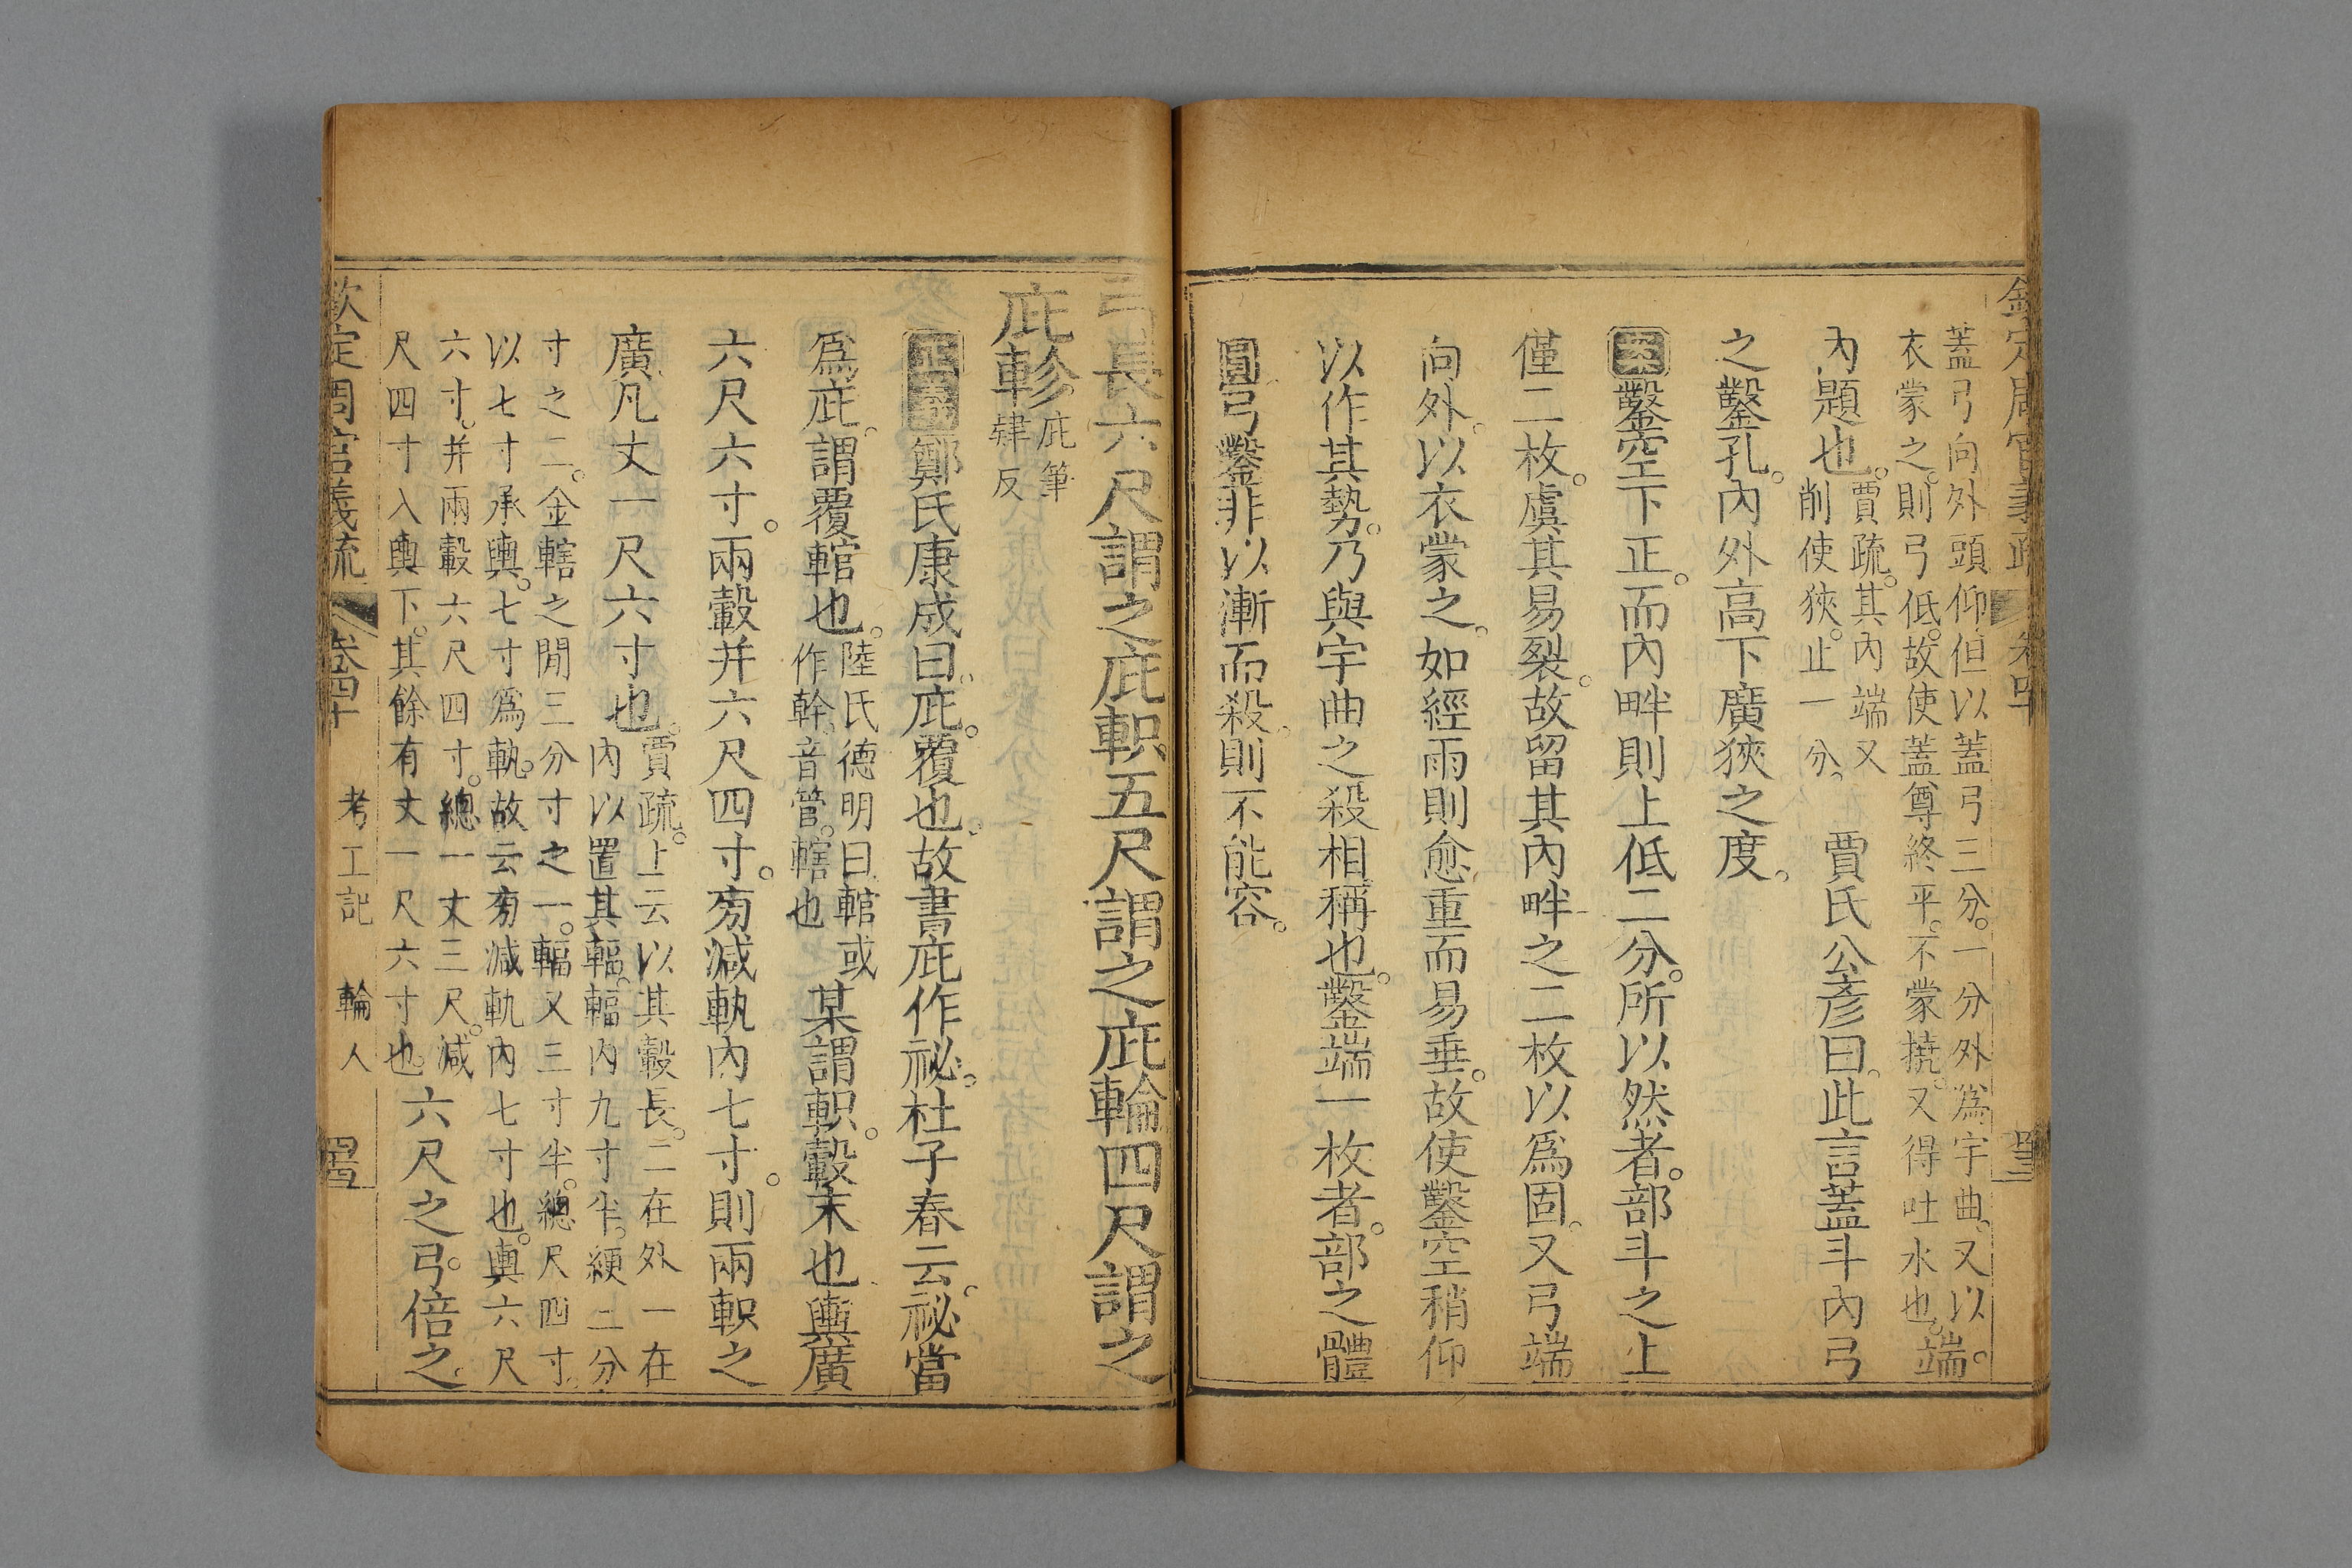 欽定周官義疏 卷四十 四三
蓋弓向外頭仰但以蓋弓三分。一分外爲宇曲。又以
衣蒙之。則弓低。故使蓋尊終平。不蒙撓。又得吐水也。端。
內題也。賈疏。其內端又
削使狹。止一分。賈氏公彥曰。此言蓋斗內弓
之鑿孔。內外高下廣狹之度。
案鑿空下正。而內畔則上低二分。所以然者。部斗之上
僅二枚。虞其易裂。故留其內畔之二枚以爲固。又弓端
向外。以衣蒙之。如經雨則愈重而易垂。故使鑿空稍仰
以作其勢。乃與宇曲之殺相稱也。鑿端一枚者。部之體
圓弓鑿非以漸而殺。則不能容。
弓長六尺謂之庇軹五尺謂之庇輪四尺謂之
庇軫庇筆
肄反
正義鄭氏康成曰。庇。覆也。故書庇作祕。杜子春云。祕當
爲庇。謂覆輨也。陸氏德明曰輨或
作幹。音管。轄也某謂軹。轂末也輿廣
六尺六寸。兩轂并六尺四寸。旁減軌內七寸。則兩軹之
廣凡丈一尺六寸也。賈疏。上云以其轂長。二在外一在
內以置其輻。輻內九寸半。綆二分
寸之二。金轄之閒三分寸之一。輻又三寸半。總尺四寸
以七寸承輿。七寸爲軌。故云旁減軌內七寸也。輿六尺
六寸。并兩轂六尺四寸。總一丈三尺。減
尺四寸入輿下。其餘有丈一尺六寸也。六尺之弓。倍之。
欽定周官義疏 卷四十 考工記 輪人